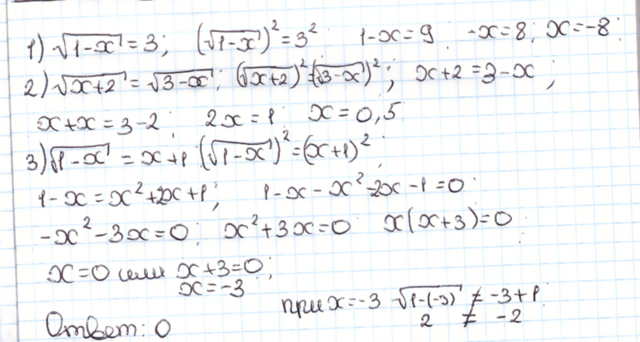 1) √(1-x) = 3; (√(1-x))² = 3² 1-x = 9 -x = 8; x = -8
2) √(x+2) = √(3-x); (√(x+2))² = (√(3-x))²; x+2 = 3-x;
x+x = 3-2; 2x = 1; x = 0,5
3) √(1-x) = x+1 (√(1-x))² = (x+1)²;
1-x = x²+2x+1; 1-x-x²-2x-1 = 0
-x²-3x = 0; x²+3x = 0 x(x+3) = 0
x = 0 или x+3 = 0;
x = -3
при x = -3 √(1-(-3)) ≠ -3+1
2 ≠ -2
Ответ: 0